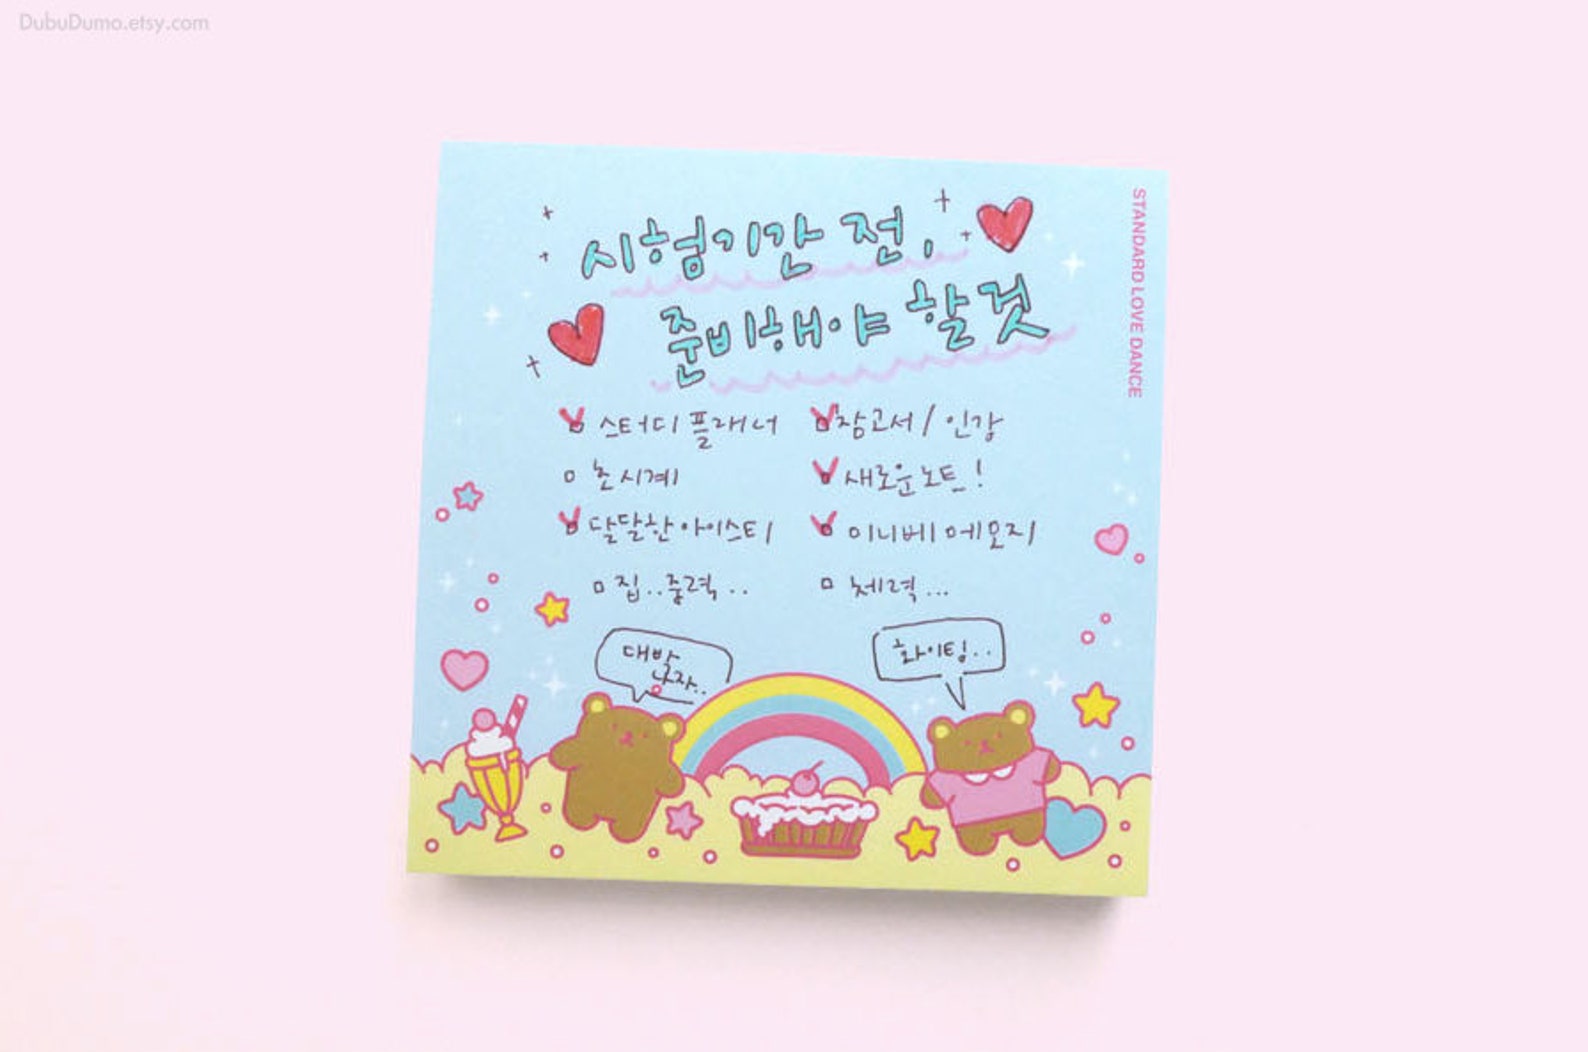 DubuDumo.etsy.com
STANDARD LOVE DANCE
시험기간 전,
준비해야 할 것
스터디 플래너
참고서 / 인강
초시계
새로운 노트!
달달한 아이스티
미니베 메모지
집..중력..
체력...
대박
나자..
화이팅..